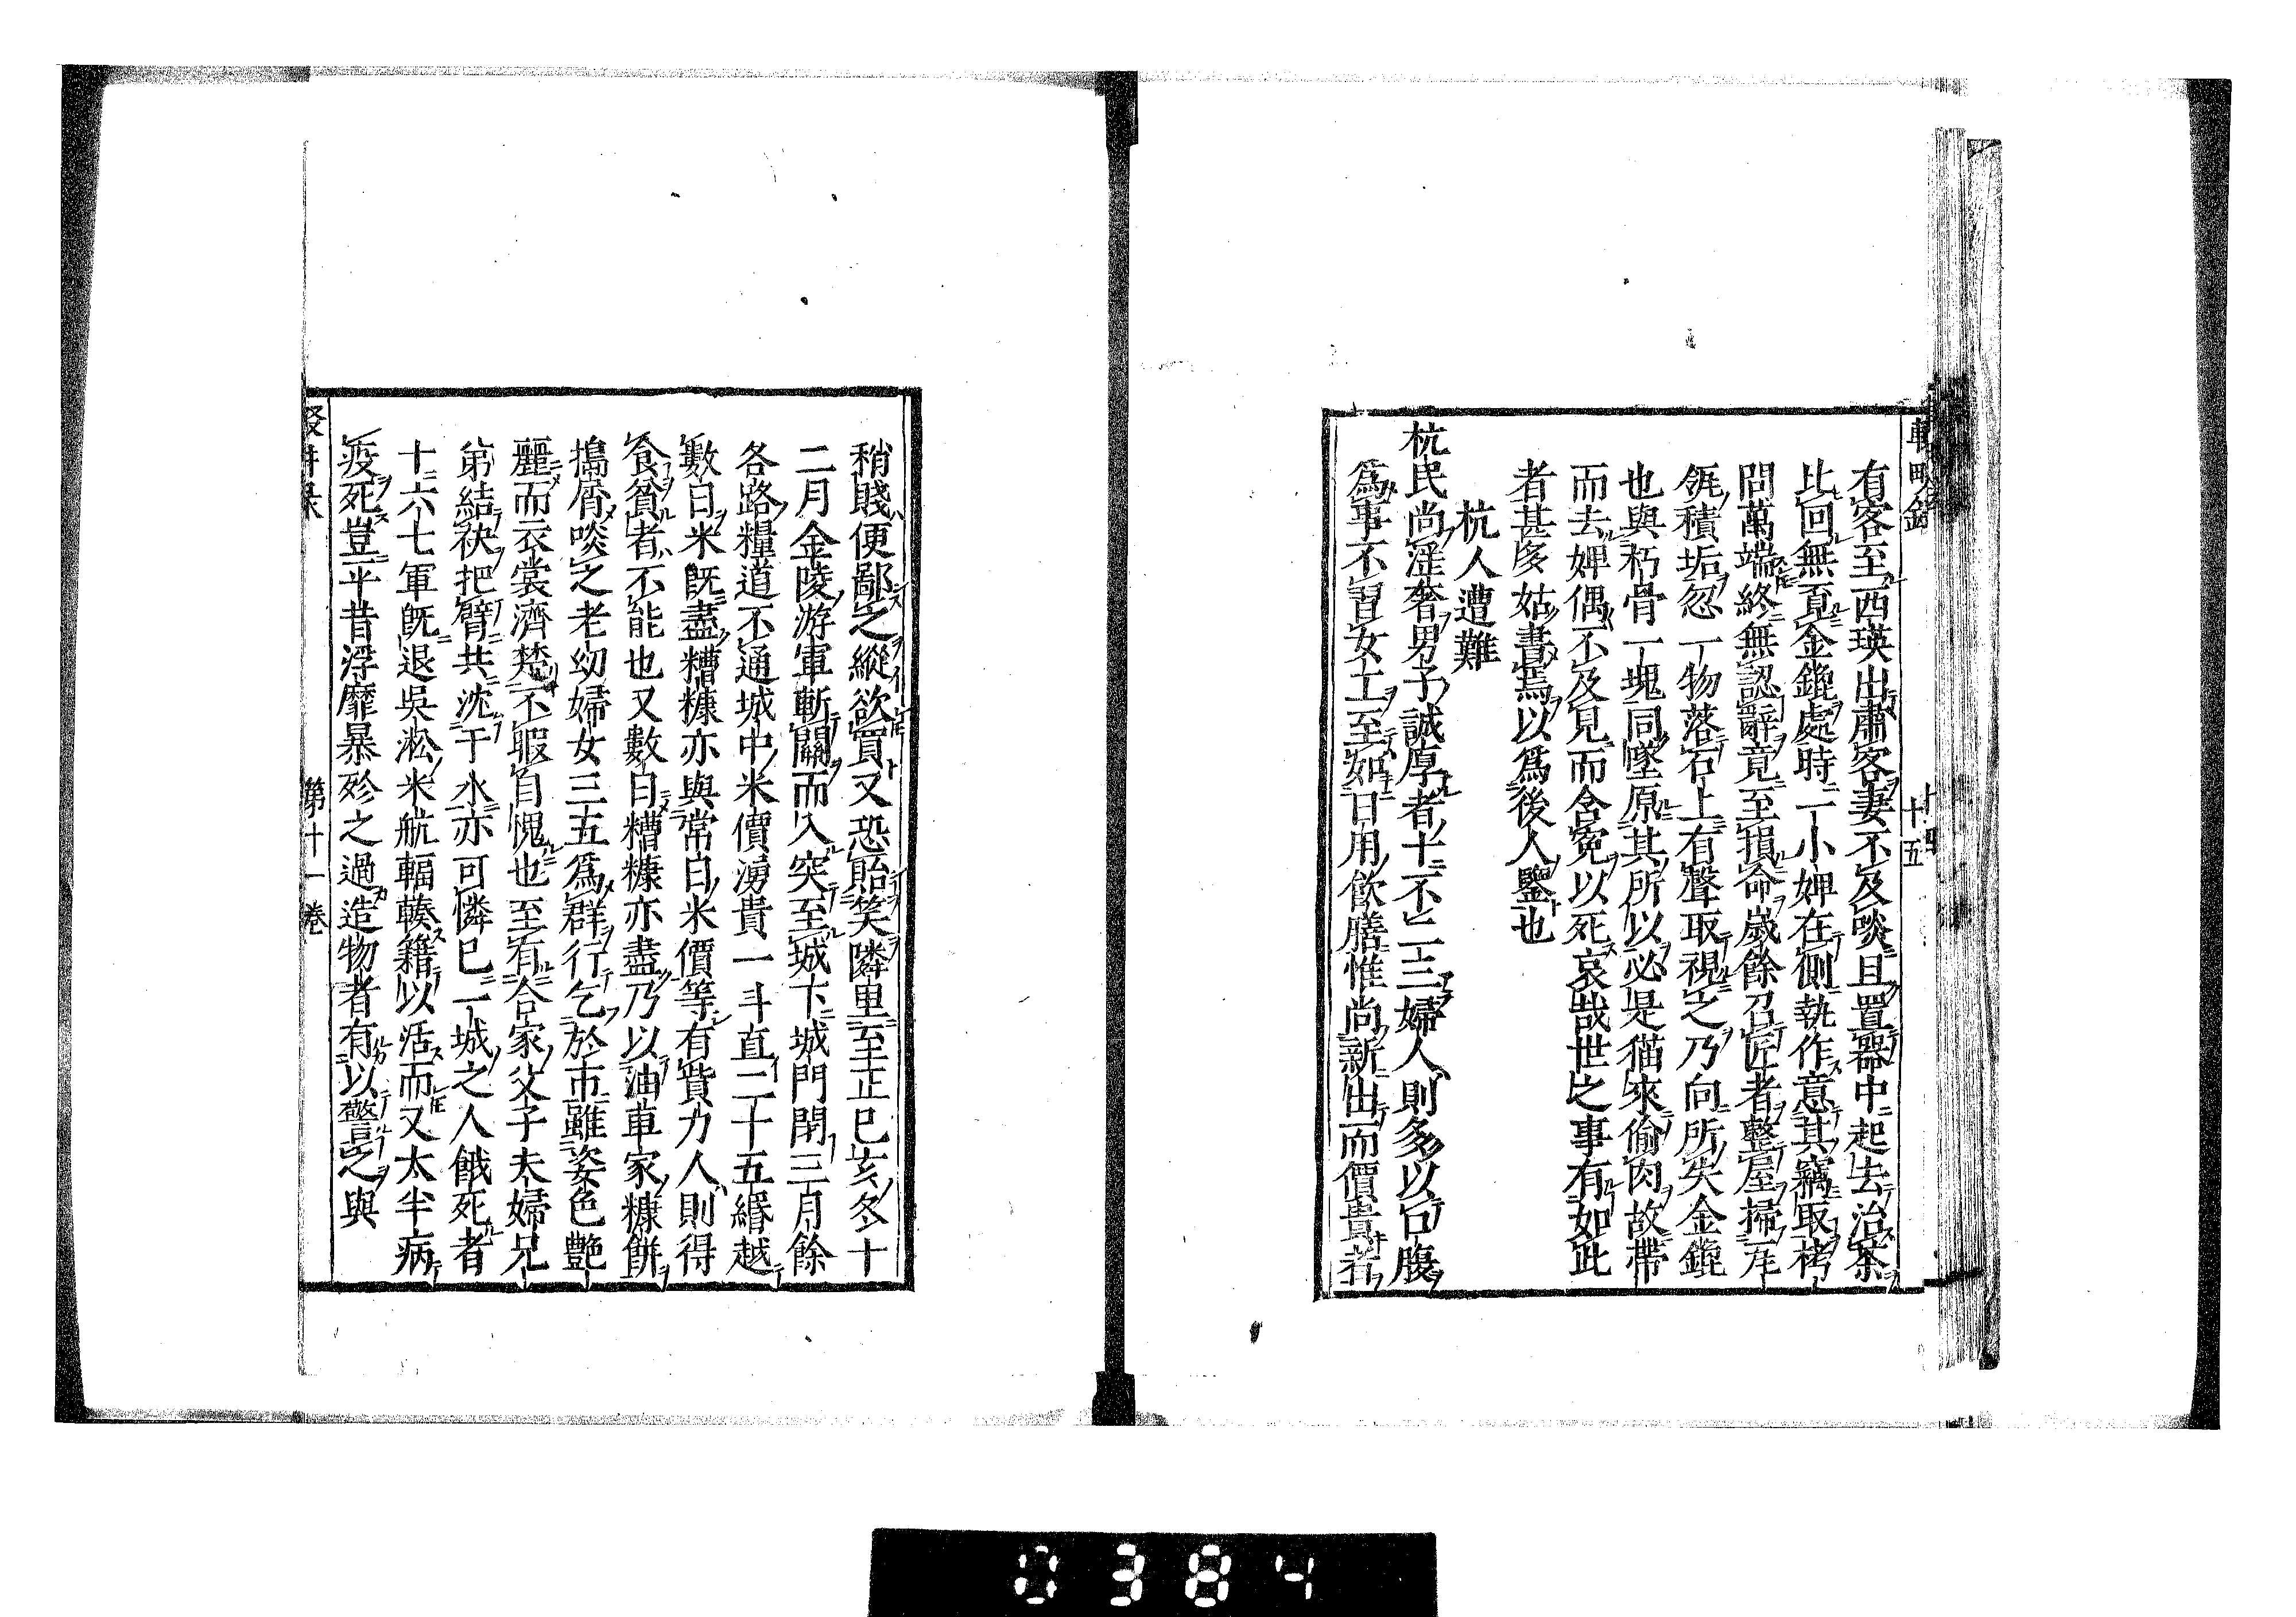 輟畊錄
十五
有客至西瑛出肅客妻不及啖且置器中起去治茶
比回無覔金鎞處時一小婢在側執作意其竊取拷
問萬端終無認辭竟至損命歲餘召匠者整屋掃瓦
瓴積垢忽一物落石上有聲取視之乃向所失金鎞
也與朽骨一塊同墜原其所以必是猫來偷肉故帶
而去婢偶不及見而含冤以死哀哉世之事有如此
者甚多姑書焉以爲後人鑒也
杭人遭難
杭民尚淫奢男子誠厚者十不二三婦人則多以口腹
爲事不習女工至如日用飲膳惟尚新出而價貴者
稍賤便鄙之縱欲買又恐貽笑隣里至正己亥冬十
二月金陵游軍斬關而入突至城下城門閉三月餘
各路糧道不通城中米價湧貴一斗直二十五緡越
數日米既盡糟糠亦與常日米價等有貲力人則得
食貧者不能也又數日糟糠亦盡乃以油車家糠餅
搗屑啖之老幼婦女三五爲群行乞於市雖姿色艶
麗而衣裳濟楚不暇自愧也至有合家父子夫婦兄
弟結袂把臂共沈于水亦可憐已一城之人餓死者
十六七軍既退吳淞米航輻輳籍以活而又太半病
疫死豈平昔浮靡暴殄之過造物者有以警之與
第十一卷
0384